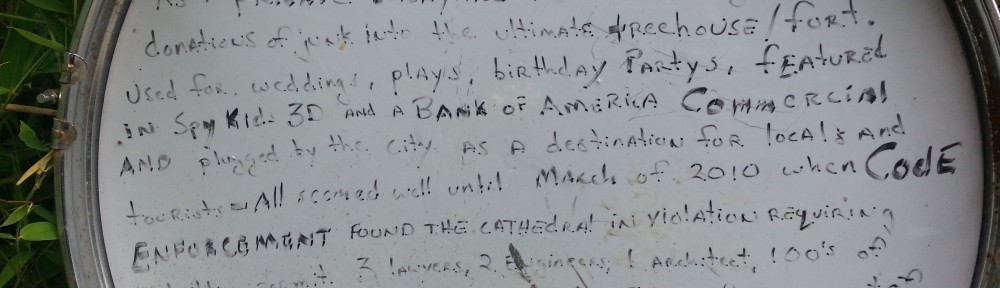 donations of junk into the ultimate treehouse/fort.
Used for weddings, plays, birthday Partys, featured
in Spy Kids 3D and a Bank of America Commercial
and plugged by the city as a destination for locals and
tourists - All seemed well until March of 2010 when Code
Enforcement found the Cathedral in violation requiring
3 lawyers, 2 Engineers, 1 Architect, 100's of